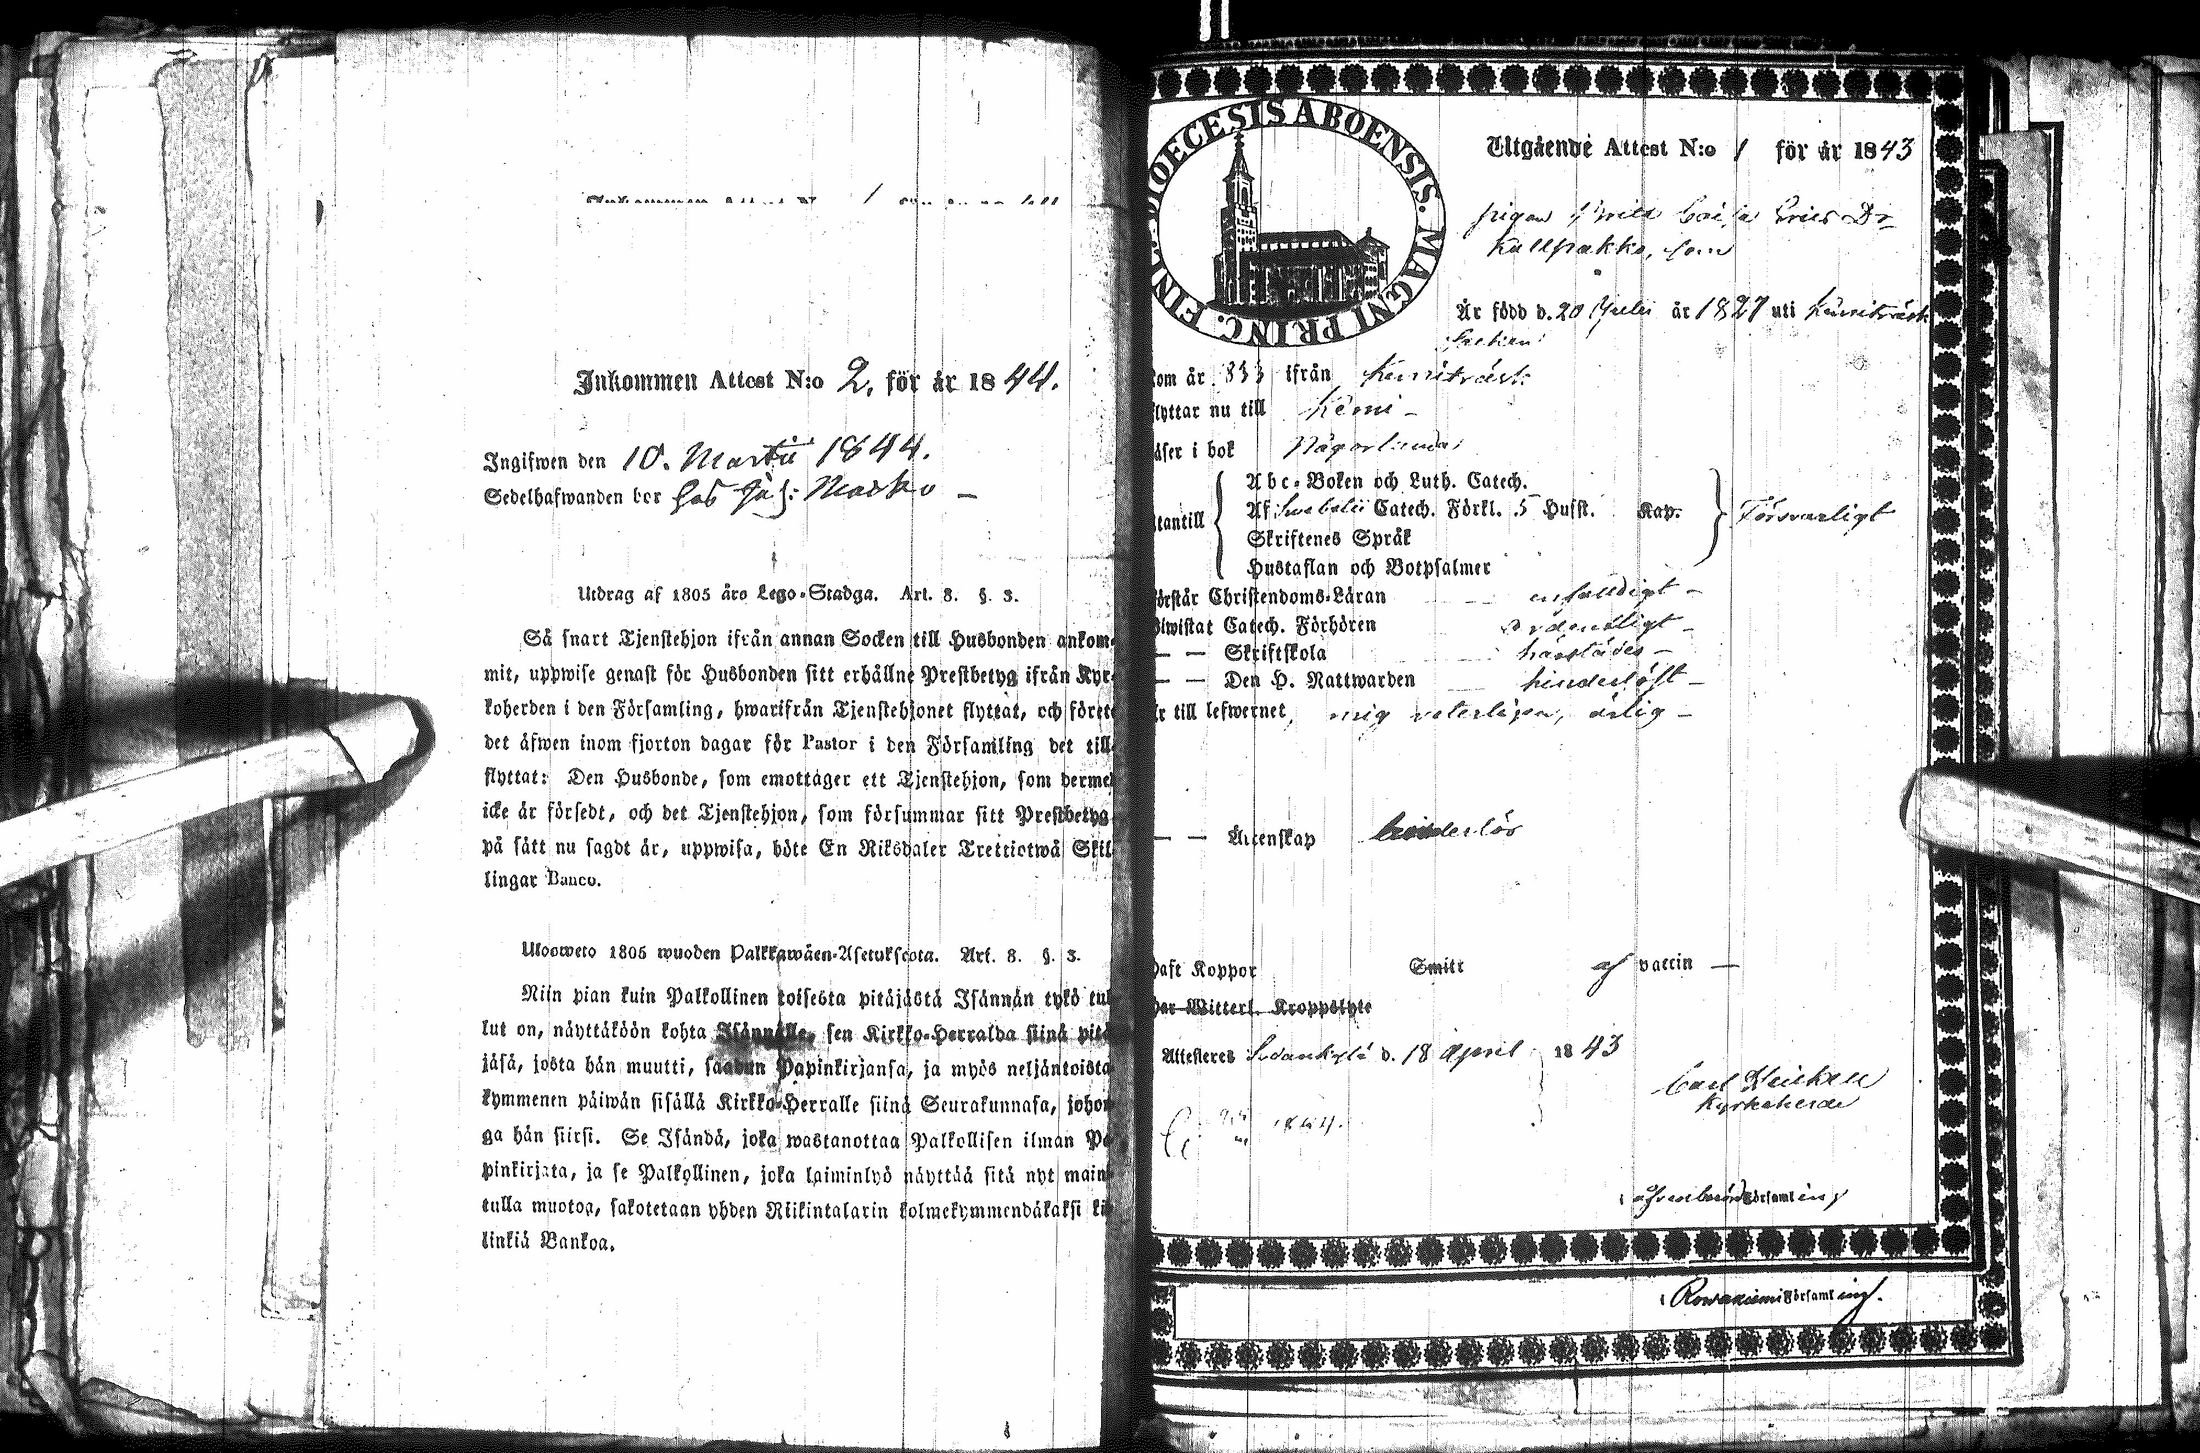 Inkommen Attest N:o 2. för år 1844.
Ingifwen den 10. Martii 1844.
Sedelhafwanden bor hos Marko –
Utdrag af 1805 års Lego-Stadga. Art. 8. §. 3.
Så snart Tjenstehjon ifrån annan Socken till Husbonden ankom-
mit, uppwise genast för Husbonden sitt erhållne Prestbetyg ifrån Kyr-
koherden i den Församling, hwarifrån Tjenstehjonet flyttat, och förete
det äfwen inom fjorton dagar för Pastor i den Församling det till-
flyttat: Den Husbonde, som emottager ett Tjenstehjon, som derme
icke är försedt, och det Tjenstehjon, som försummar sitt Prestbetyg
på sätt nu sagdt är, uppwisa, böte En Riksdaler Trettiotwå Skil
lingar Banco.
Ulosweto 1805 wuoden Palkkawäen-Asetuksesta. Art. 8. §. 3.
Niin pian kuin Palkollinen toisesta pitäjästä Isännän tykö tul
lut on, näyttäköön kohta Isännälle, sen Kirkko-Herralda siinä pitä
jäsä, josta hän muutti, saadun Papinkirjansa, ja myös neljäntoista
kymmenen päiwän sisällä Kirkko-Herralle siinä Seurakunnasa, johon
ga hän siirsi. Se Isändä, joka wastanottaa Palkollisen ilman Pa
pinkirjata, ja se Palkollinen, joka laiminlyö näyttää sitä nyt main
tulla muotoa, sakotetaan yhden Riikintalarin kolmekymmendäkaksi ki
linkiä Bankoa.
DIOECESIS ABOENSIS. MAGNI PRINC. FINL.
Utgående Attest N:o 1 för år 1843
pigan Brita Caisa Erics Dr
Kallpakka, som
Är född d. 20 Julii år 1827 uti Kemiträsk
Socken
kom år 833 ifrån Kemiträsk
flyttar nu till Kemi –
läser i bok Någorlunda
utantill
Abc-Boken och Luth. Catech.
Af Swebelii Catech. Förkl. 5 Hufst. Kap.
Skriftenes Språk
Hustaflan och Botpsalmer
Försvarligt
förstår Christendoms-Läran enfaldigt –
biwistat Catech. Förhören ordentligt –
— — Skriftskola härstädes –
— — Den H. Nattwarden hinderlöst –
är till lefwernet, ärlig –
— — Äktenskap hinderlös
haft Koppor Smitt af vaccin —
har Witterl. Kroppslyte
Attesteres Sodankylä d. 18 April 1843
Carl
Kyrkoherde
1844.
Församling
Rowaniemi Församling.